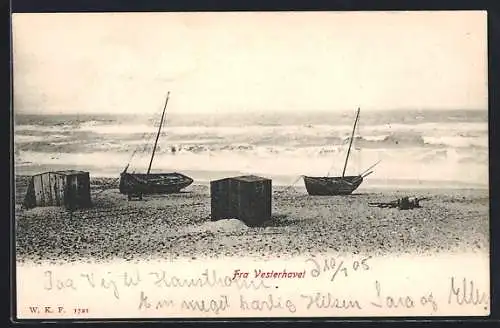 Fra Vesterhavet
Paa Vej til Hanstholm d 10/7 05
En meget hjertelig Hilsen Sara og Elly
W. K. F. 1721